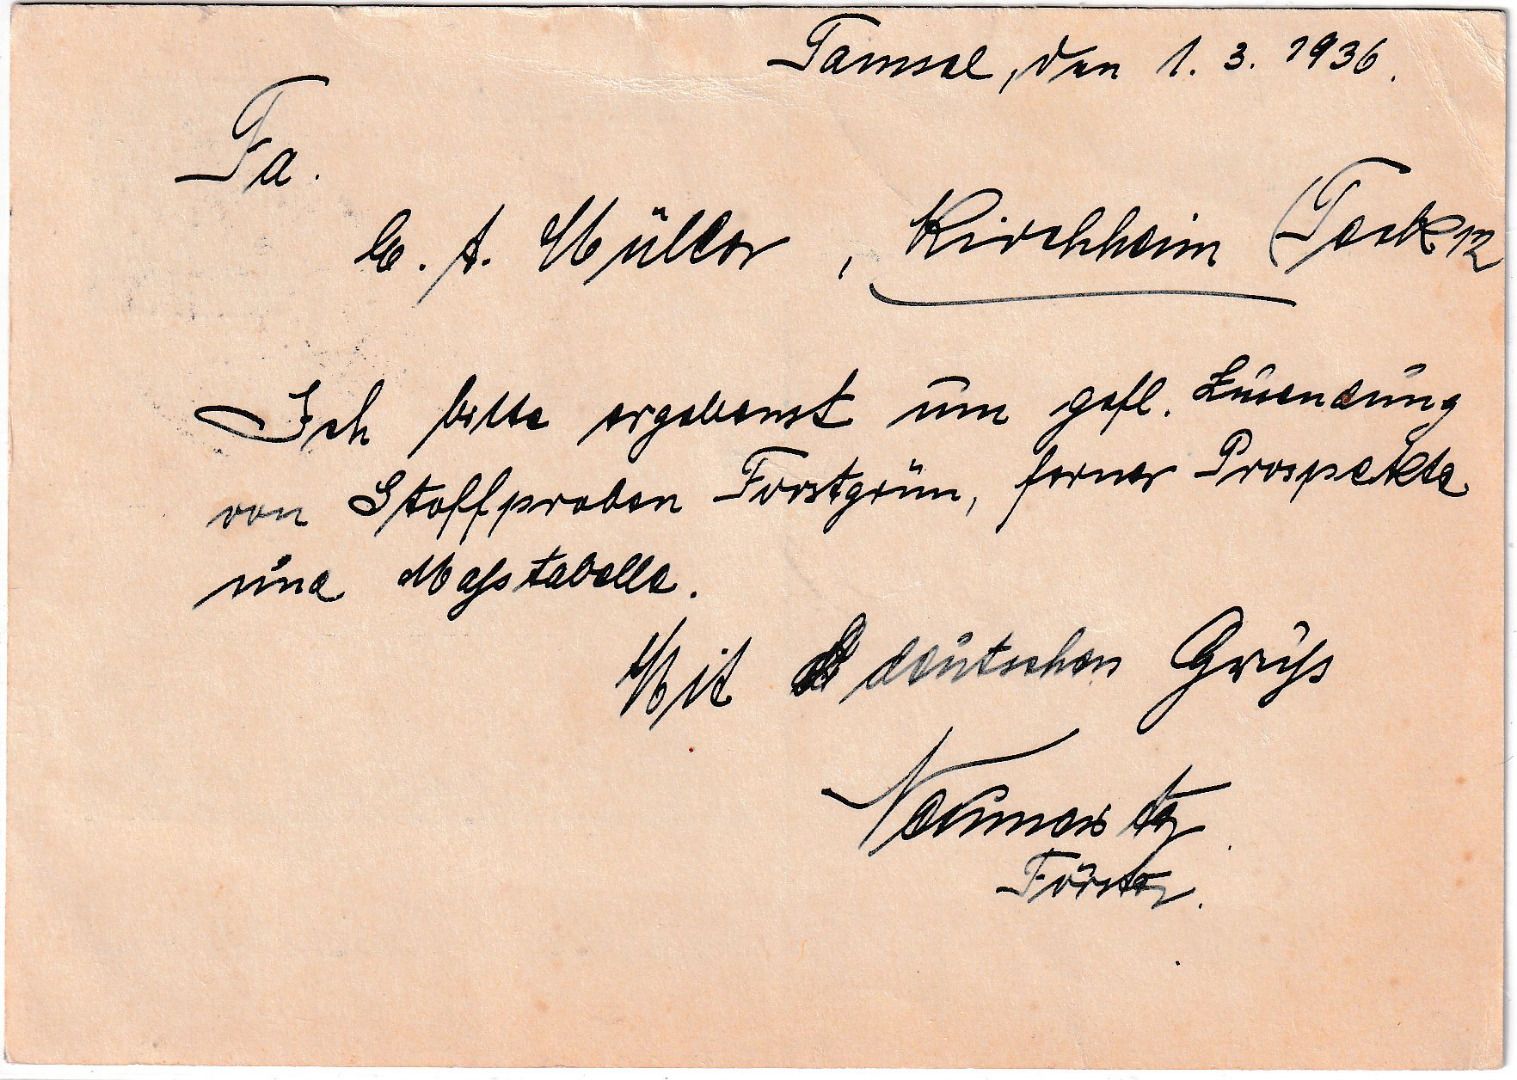 Tamsel, den 1. 3. 1936.
Fa.
C. A. Müller, Kirchheim (Teck 12
Ich bitte ergebenst um gefl. Zusendung
von Stoffproben Forstgrün, ferner Prospekte
und Maßtabelle.
Mit deutschen Gruß
Förster.